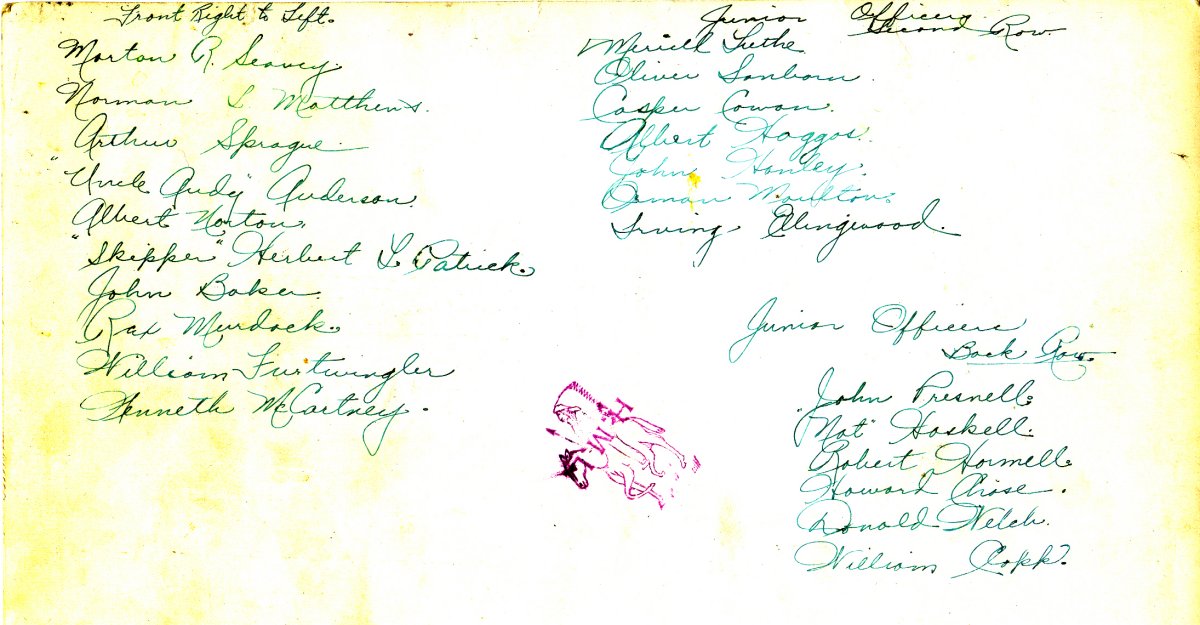 Front Right to Left.
Morton R. Seavey.
Norman L. Matthews.
Arthur Sprague.
"Uncle Andy" Anderson.
Albert Norton.
"Skipper" Herbert L. Patrick.
John Baker.
Rax Murdock.
William Furtwingler
Kenneth McCartney.
Junior Officers
Second Row
Merrill
Oliver Sanborn.
Casper Cowan.
Albert Haggas.
John Hanley.
Orman Moulton.
Irving Ellingwood.
Junior Officers
Back Row.
John Presnell.
"Nat" Haskell.
Robert Hormell.
Howard Chase.
Donald Welch.
William Copp.